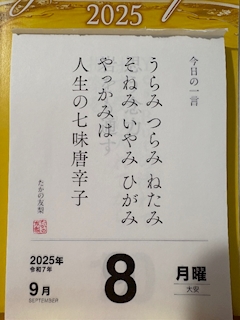 2025
今日の一言
うらみ つらみ ねたみ
そねみ いやみ ひがみ
やっかみは
人生の七味唐辛子
たかの友梨
2025年
令和7年
9月
SEPTEMBER
8
月曜
大安